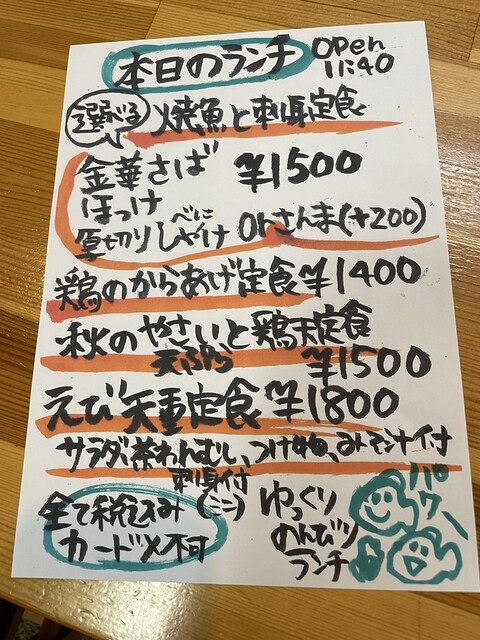 本日のランチ
OPen
11:40
選べる
焼魚と刺身定食
金華さば ¥1500
ほっけ
厚切りべにしゃけ orさんま(+200)
鶏のからあげ定食 ¥1400
秋のやさいと鶏天定食
天ぷら ¥1500
えび天重定食 ¥1800
サラダ、茶わんむし、つけ物、みそ
刺身付
全て税込み
カード✕不可
ゆっくり
のんびり
ランチ
パワー